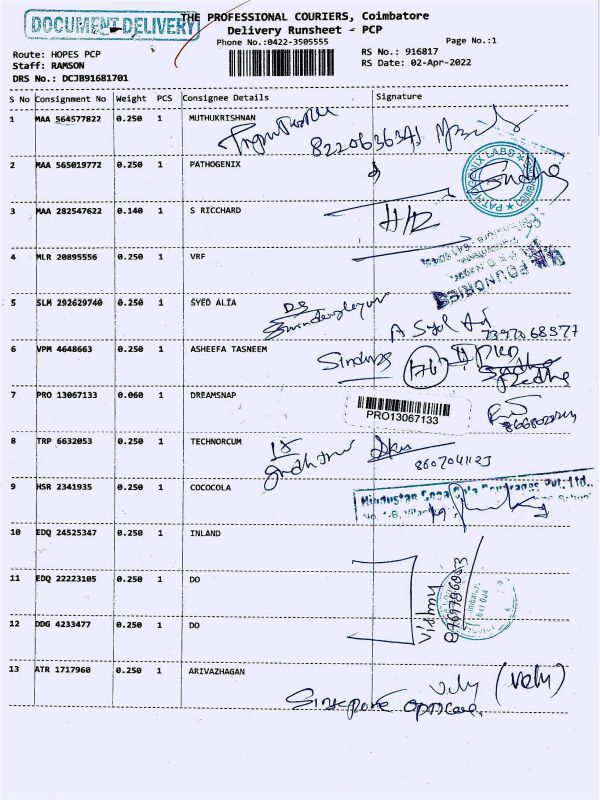 DOCUMENT DELIVERY
THE PROFESSIONAL COURIERS, Coimbatore
Delivery Runsheet - PCP
Phone No.:0422-3505555
Page No.:1
Route: HOPES PCP
Staff: RAMSON
DRS No.: DCJB91681701
RS No.: 916817
RS Date: 02-Apr-2022
S No Consignment No Weight PCS Consignee Details Signature
1 MAA 564577822 0.250 1 MUTHUKRISHNAN
8220636341
2 MAA 565019772 0.250 1 PATHOGENIX
PATHOGENIX LABS
3 MAA 282547622 0.140 1 S RICCHARD
H/R
4 MLR 20895556 0.250 1 VRF
FOUNDRIES
5 SLM 292629740 0.250 1 SYED ALIA
A Syed
6 VPM 4648663 0.250 1 ASHEEFA TASNEEM
7 PRO 13067133 0.060 1 DREAMSNAP
PRO13067133
8 TRP 6632053 0.250 1 TECHNORCUM
8607041123
9 HSR 2341935 0.250 1 COCOCOLA
Hindustan Coca Cola Beverages Pvt. Ltd.,
10 EDQ 24525347 0.250 1 INLAND
11 EDQ 22223105 0.250 1 DO
12 DDG 4233477 0.250 1 DO
13 ATR 1717960 0.250 1 ARIVAZHAGAN
Vely (Vely)
Singapore opticeal.